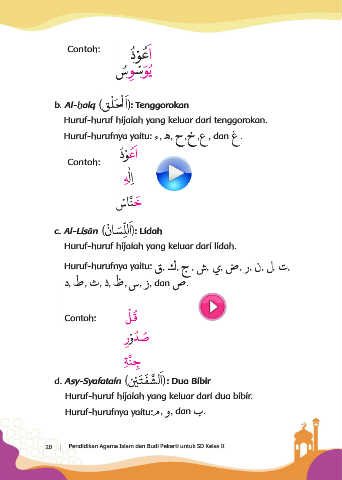 Contoh:
أَعُوْذُ
يُوَسْوِسُ
b. Al-ḥalq (اَلْحَلْقِ): Tenggorokan
Huruf-huruf hijaiah yang keluar dari tenggorokan.
Huruf-hurufnya yaitu: ء, ه, ح, خ, ع, dan غ.
Contoh:
أَعُوْذُ
إِلٰهِ
خَنَّاسْ
c. Al-Lisān (اَللِّسَانْ): Lidah
Huruf-huruf hijaiah yang keluar dari lidah.
Huruf-hurufnya yaitu: ق, ك, ج, ش, ي, ض, ر, ن, ل, ت,
د, ط, ث, ذ, ظ, س, ز, dan ص.
Contoh:
قُلْ
صُدُوْرِ
جِنَّةِ
d. Asy-Syafatain (اَلشَّفَتَيْنْ): Dua Bibir
Huruf-huruf hijaiah yang keluar dari dua bibir.
Huruf-hurufnya yaitu: م, و, dan ب.
20 | Pendidikan Agama Islam dan Budi Pekerti untuk SD Kelas II